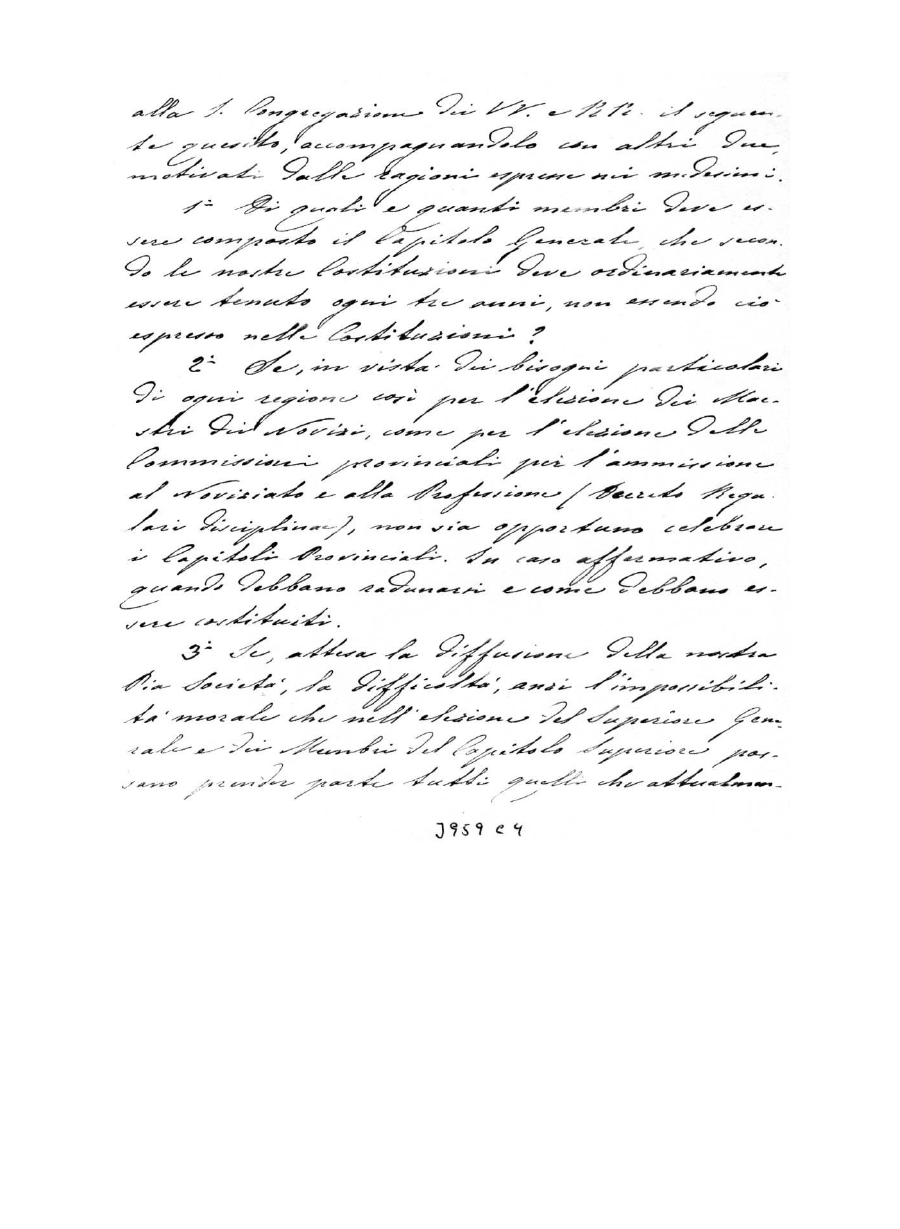 alla S. Congregazione dei VV. e RR. il seguen-
te quesito, accompagnandolo con altri due,
motivati dalle ragioni espresse nei medesimi.
1º Di quali e quanti membri deve es-
sere composto il Capitolo Generale, che secon-
do le nostre Costituzioni deve ordinariamente
essere tenuto ogni tre anni, non essendo ciò
espresso nelle Costituzioni?
2º Se, in vista dei bisogni particolari
di ogni regione così per l'elezione dei Mae-
stri dei Novizi, come per l'elezione delle
Commissioni provinciali per l'ammissione
al Noviziato e alla Professione (Decreto Regu-
lari disciplinae), non sia opportuno celebrare
i Capitoli Provinciali. In caso affermativo,
quando debbano radunarsi e come debbano es-
sere costituiti.
3º Se, attesa la diffusione della nostra
Pia Società, la difficoltà, anzi l'impossibili-
tà morale che nell'elezione del Superiore Gene-
rale e dei Membri del Capitolo Superiore pos-
sano prender parte tutti quelli che attualmen-
J959 c 4